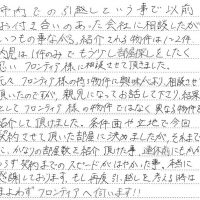 市内での引越しという事で以前
お付き合いのあった会社に相談したが
いつもの事ながら、紹介される物件は1~2件
内見は1件のみでもう少し部屋探しをしたく
思い フロンティア様に相談させて頂きました。
元々フロンティア様の持つ物件に興味があり相談させて
頂いたのですが、親身になってお話して下さり結果
としてフロンティア様の物件ではなく異なる物件を
紹介して頂けました。条件面や立地で今回
契約させて頂いた部屋に決めましたが、それまで
に、かなりの部屋数を紹介頂けた事、連休前にもかか
わらず契約までのスピードがはやかった事、本当に
感謝しております。もし再度引越しを考える時は
まよわずフロンティアへ伺います!!